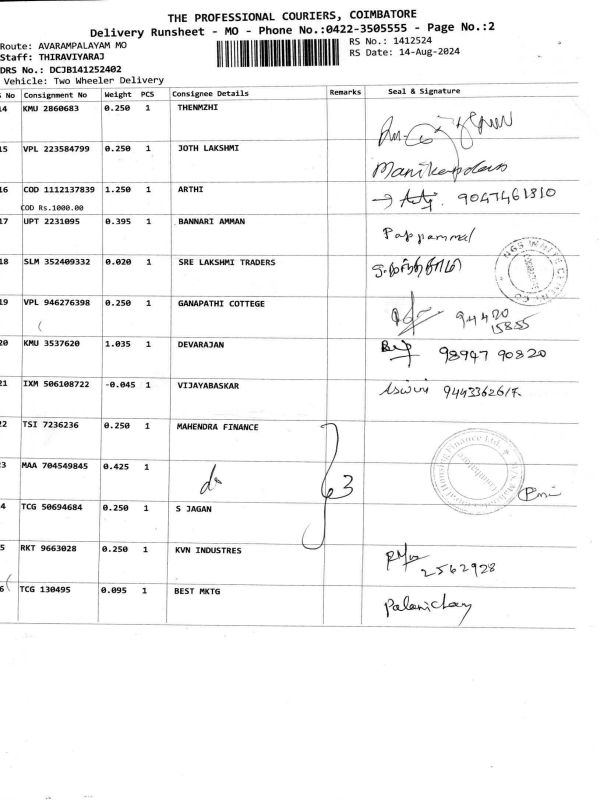 THE PROFESSIONAL COURIERS, COIMBATORE
Delivery Runsheet - MO - Phone No.:0422-3505555 - Page No.:2
Route: AVARAMPALAYAM MO
RS No.: 1412524
Staff: THIRAVIYARAJ
RS Date: 14-Aug-2024
DRS No.: DCJB141252402
Vehicle: Two Wheeler Delivery
No Consignment No Weight PCS Consignee Details Remarks Seal & Signature
14 KMU 2860683 0.250 1 THENMZHI
15 VPL 223584799 0.250 1 JOTH LAKSHMI Manikandan
16 COD 1112137839 1.250 1 ARTHI 9047461810
COD Rs.1000.00
17 UPT 2231095 0.395 1 BANNARI AMMAN Pappammal
18 SLM 352409332 0.020 1 SRE LAKSHMI TRADERS
19 VPL 946276398 0.250 1 GANAPATHI COTTEGE 94420
15855
20 KMU 3537620 1.035 1 DEVARAJAN 98947 90820
21 IXM 506108722 -0.045 1 VIJAYABASKAR Aswini 9443362617
22 TSI 7236236 0.250 1 MAHENDRA FINANCE
3 MAA 704549845 0.425 1 63
4 TCG 50694684 0.250 1 S JAGAN
5 RKT 9663028 0.250 1 KVN INDUSTRES
2562928
6 TCG 130495 0.095 1 BEST MKTG